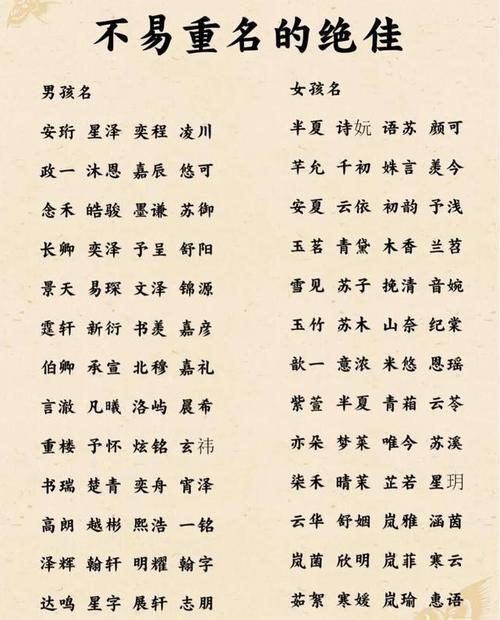 不易重名的绝佳
男孩名
安珩 星泽 奕程 凌川
政一 沐恩 嘉辰 悠可
念禾 皓骏 墨谦 苏御
长卿 奕泽 予呈 舒阳
景天 易琛 文泽 锦源
霆轩 新衍 书羡 嘉彦
伯卿 承宣 北穆 嘉礼
言澈 凡曦 洛屿 晨希
重楼 予怀 炫铭 玄祎
书瑞 楚青 奕舟 宵泽
高朗 越彬 熙浩 一铭
泽辉 翰轩 明耀 翰字
达鸣 星字 展轩 志朋
女孩名
半夏 诗妧 语苏 颜可
芊允 千初 姝言 羡今
安夏 云依 初韵 予浅
玉茗 青黛 木香 兰苕
雪见 苏子 挽清 音婉
玉竹 苏木 山奈 纪棠
歆一 意浓 米悠 恩瑶
紫萱 半夏 青葙 云苓
亦朵 梦茱 唯今 苏溪
柒禾 晴茱 芷若 星玥
云华 舒姻 岚雅 涵茵
岚茵 欣明 岚菲 寒云
茹絮 寒媛 岚瑜 惠语